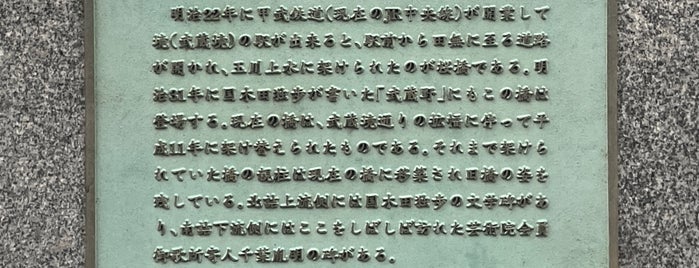 明治22年に甲武鉄道(現在のJR中央線)が開業して
境(武蔵境)の駅が出来ると、駅前から田無に至る道路
が開かれ、玉川上水に架けられたのが桜橋である。明
治31年に国木田独歩が書いた「武蔵野」にもこの橋は
登場する。現在の橋は、武蔵境通りの拡幅に伴って平
成11年に架け替えられたものである。それまで架けら
れていた橋の親柱は現在の橋に移築され旧橋の姿を
残している。北詰上流側には国木田独歩の文学碑があ
り、南詰下流側にはここをしばしば訪れた芸術院会員
御歌所寄人千葉胤明の碑がある。